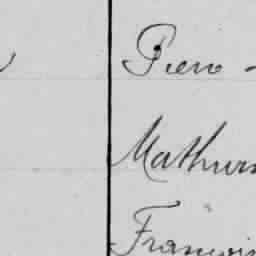 Piero -
Mathurin
François